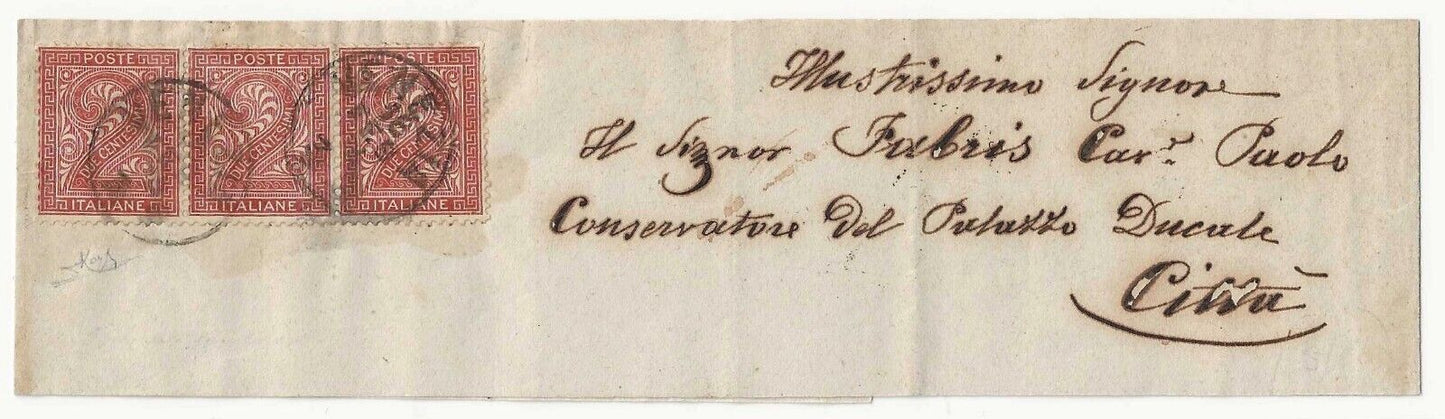 POSTE POSTE POSTE
DUE CENTESIMI DUE CENTESIMI DUE CENTESIMI
ITALIANE ITALIANE ITALIANE
Illustrissimo Signore
Il Signor Fabris Car.r Paolo
Conservatore del Palazzo Ducale
Città